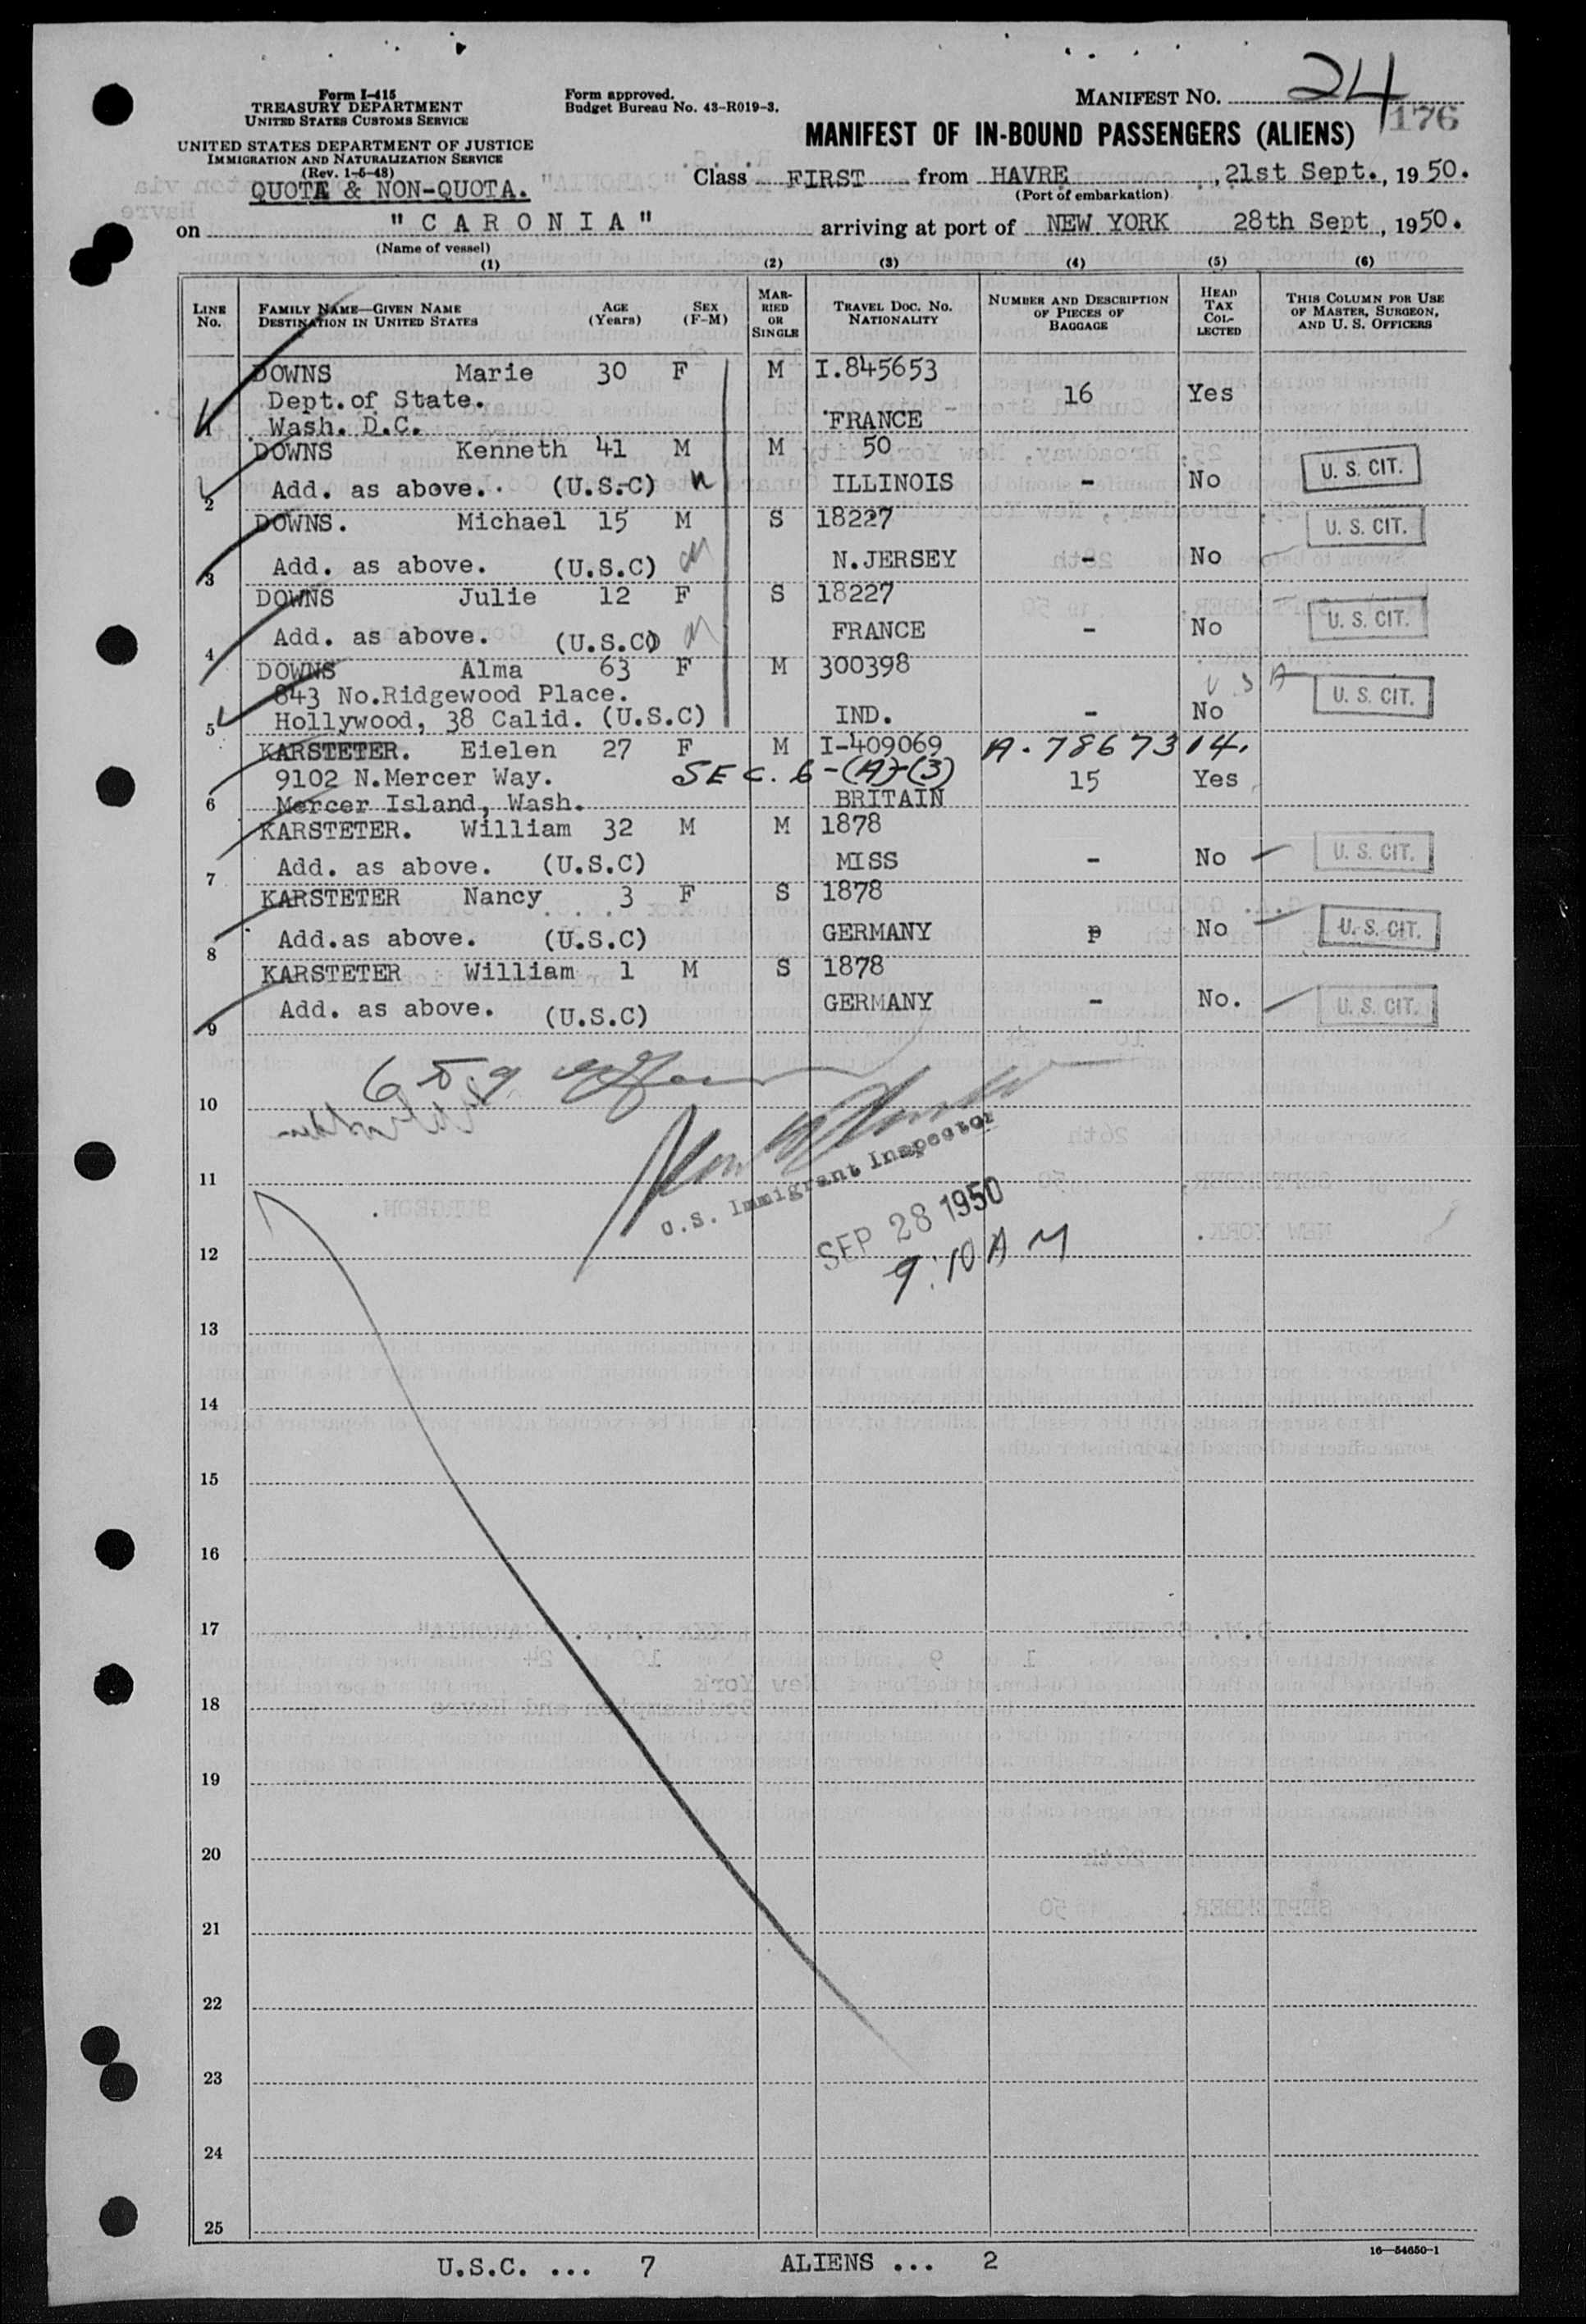 Form I-415
TREASURY DEPARTMENT
UNITED STATES CUSTOMS SERVICE
UNITED STATES DEPARTMENT OF JUSTICE
IMMIGRATION AND NATURALIZATION SERVICE
(Rev. 1-5-48)
QUOTA & NON-QUOTA.
Form approved.
Budget Bureau No. 43-R019-3.
MANIFEST NO. 24
176
MANIFEST OF IN-BOUND PASSENGERS (ALIENS)
Class FIRST from HAVRE, 21st Sept., 1950.
(Port of embarkation)
on "CARONIA" arriving at port of NEW YORK 28th Sept, 1950.
(Name of vessel)
(1) (2) (3) (4) (5) (6)
LINE No. FAMILY NAME—GIVEN NAME DESTINATION IN UNITED STATES AGE (Years) SEX (F-M) MARRIED OR SINGLE TRAVEL DOC. NO. NATIONALITY NUMBER AND DESCRIPTION OF PIECES OF BAGGAGE HEAD TAX COLLECTED THIS COLUMN FOR USE OF MASTER, SURGEON, AND U. S. OFFICERS
DOWNS Marie 30 F M I.845653
Dept.of State. 16 Yes
1 Wash. D.C. FRANCE
DOWNS Kenneth 41 M M 50
2 Add. as above. (U.S.C) ILLINOIS - No U. S. CIT.
DOWNS. Michael 15 M S 18227 U. S. CIT.
3 Add. as above. (U.S.C) N.JERSEY - No
DOWNS Julie 12 F S 18227
4 Add. as above. (U.S.C) FRANCE - No U. S. CIT.
DOWNS Alma 63 F M 300398
843 No.Ridgewood Place. U S A U. S. CIT.
5 Hollywood, 38 Calid. (U.S.C) IND. - No
KARSTETER. Eielen 27 F M I-409069 A-7867314.
9102 N.Mercer Way. SEC. 6-(A)-(3) 15 Yes
6 Mercer Island, Wash. BRITAIN
KARSTETER. William 32 M M 1878
7 Add. as above. (U.S.C) MISS - No U. S. CIT.
KARSTETER Nancy 3 F S 1878
8 Add.as above. (U.S.C) GERMANY No U. S. CIT.
KARSTETER William 1 M S 1878
9 Add. as above. (U.S.C) GERMANY - No. U. S. CIT.
10
U.S. Immigrant Inspector
11
SEP 28 1950
12
9:10 AM
13
14
15
16
17
18
19
20
21
22
23
24
25
16—54650-1
U.S.C. ... 7 ALIENS ... 2